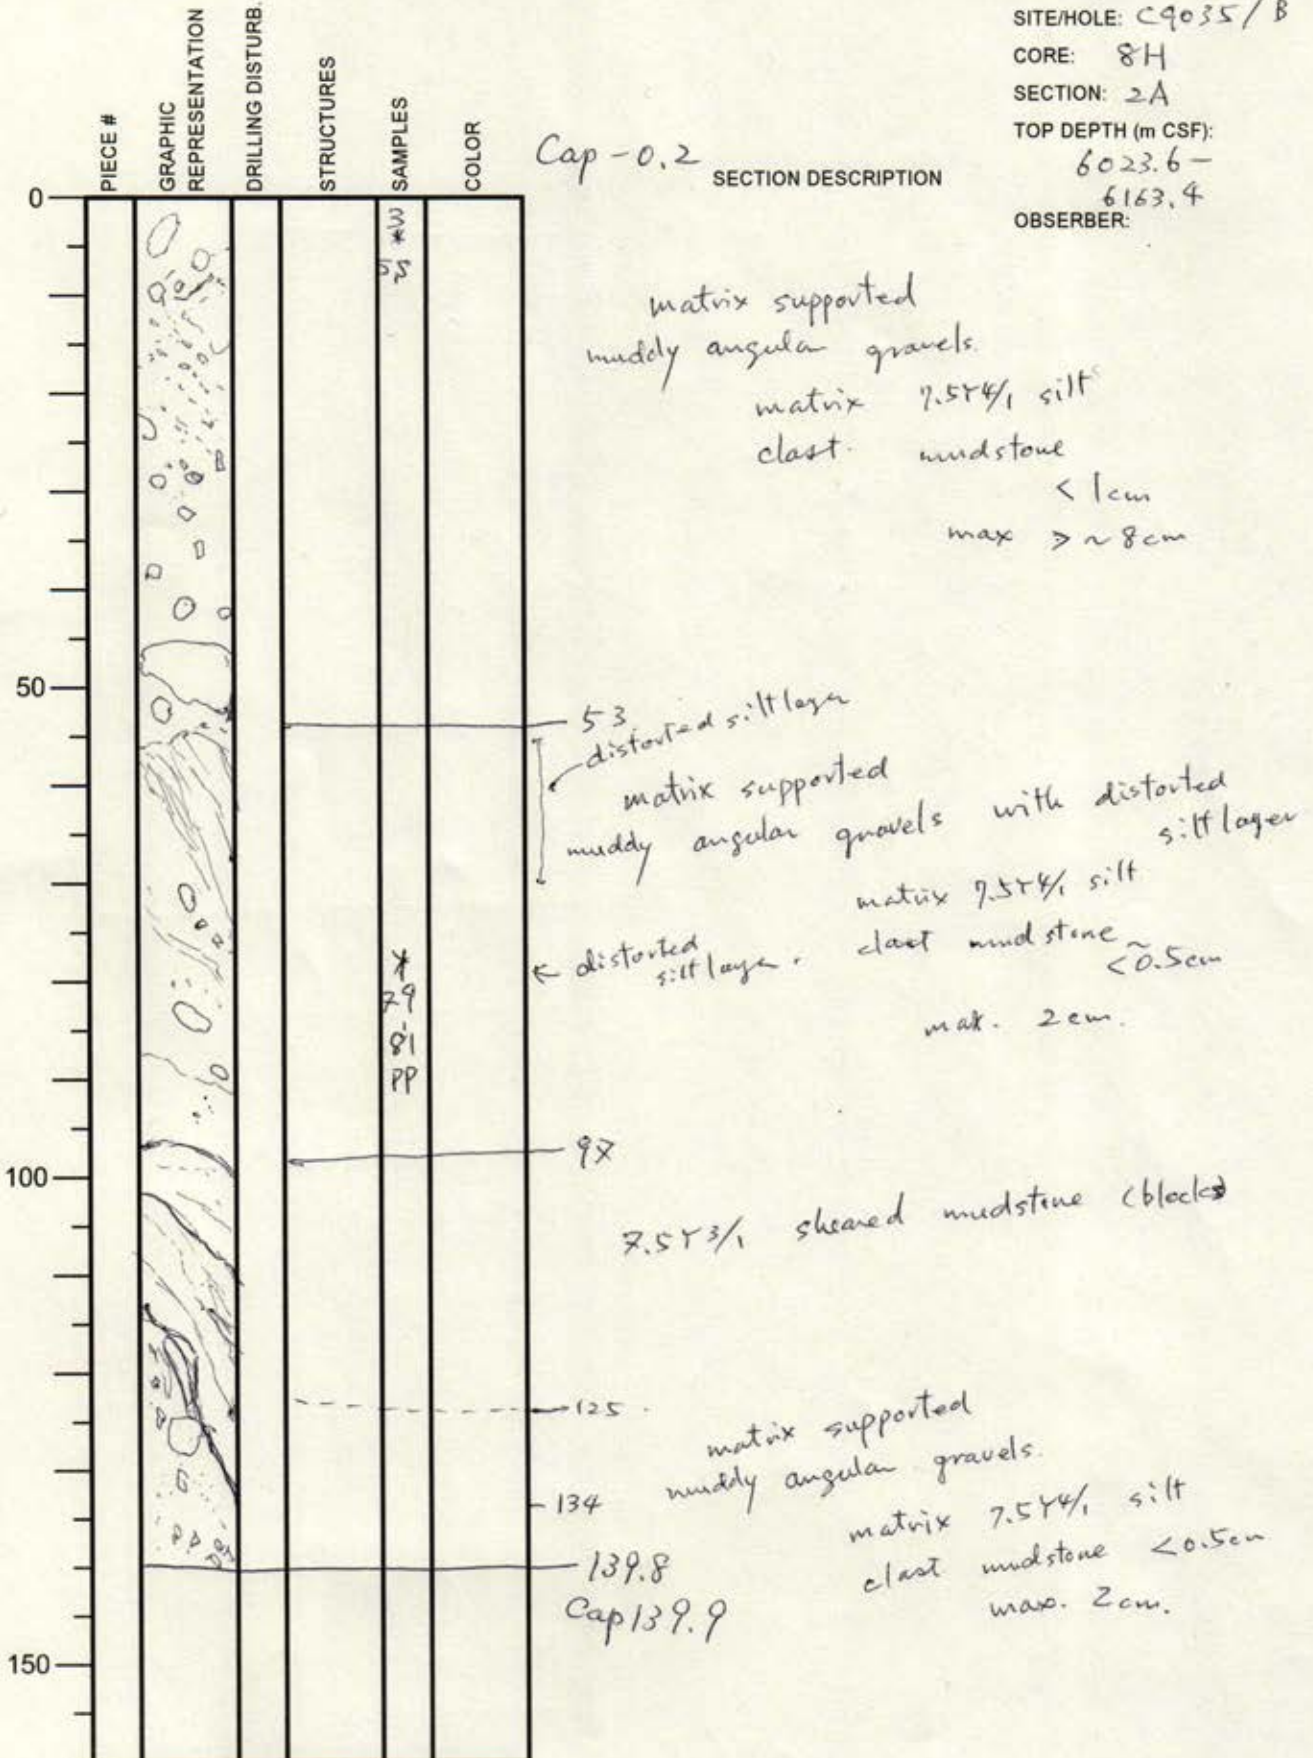 SITE/HOLE: C9035/B
CORE: 8H
SECTION: 2A
TOP DEPTH (m CSF):
6023.6-
6163.4
OBSERBER:
PIECE #
GRAPHIC
REPRESENTATION
DRILLING DISTURB.
STRUCTURES
SAMPLES
COLOR
Cap-0.2
SECTION DESCRIPTION
0
3
*
SS
matrix supported
muddy angular gravels.
matrix 7.5Y4/1 silt
clast. mudstone
< 1cm
max > ~ 8cm
50
53
distorted silt layer
matrix supported
muddy angular gravels with distorted
silt layer
matrix 7.5Y4/1 silt
← distorted
silt layer.
clast mudstone
<0.5cm
max. 2cm.
*
79
81
PP
97
100
7.5Y3/1 sheared mudstone (blocks
125
matrix supported
muddy angular gravels.
134
matrix 7.5Y4/1 silt
clast mudstone <0.5cm
max. 2cm.
139.8
Cap139.9
150